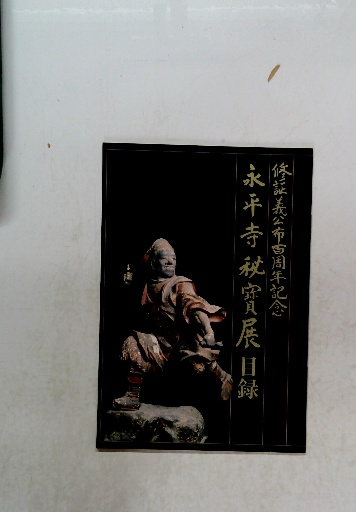 修証義公布百周年記念
永平寺秘寳展目録